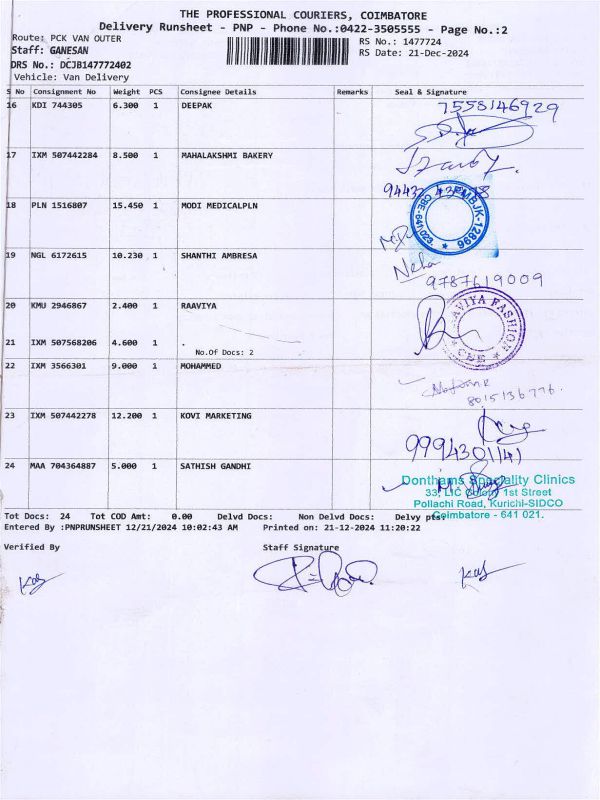 THE PROFESSIONAL COURIERS, COIMBATORE
Delivery Runsheet - PNP - Phone No.:0422-3505555 - Page No.:2
Route: PCK VAN OUTER
RS No.: 1477724
Staff: GANESAN
RS Date: 21-Dec-2024
DRS No.: DCJB147772402
Vehicle: Van Delivery
S No Consignment No Weight PCS Consignee Details Remarks Seal & Signature
16 KDI 744305 6.300 1 DEEPAK 7558146929
17 IXM 507442284 8.500 1 MAHALAKSHMI BAKERY
18 PLN 1516807 15.450 1 MODI MEDICALPLN
PMBJK-12896
CBE-641 023.
19 NGL 6172615 10.230 1 SHANTHI AMBRESA
Neha
9787619009
20 KMU 2946867 2.400 1 RAAVIYA
RAAVIYA FASHION
CBE
21 IXM 507568206 4.600 1 .
No.Of Docs: 2
22 IXM 3566301 9.000 1 MOHAMMED
8015136776.
23 IXM 507442278 12.200 1 KOVI MARKETING
9994301141
24 MAA 704364887 5.000 1 SATHISH GANDHI
Donthams Speciality Clinics
33, LIC Colony 1st Street
Pollachi Road, Kurichi-SIDCO
Coimbatore - 641 021.
Tot Docs: 24 Tot COD Amt: 0.00 Delvd Docs: Non Delvd Docs: Delvy pts:
Entered By :PNPRUNSHEET 12/21/2024 10:02:43 AM Printed on: 21-12-2024 11:20:22
Verified By Staff Signature